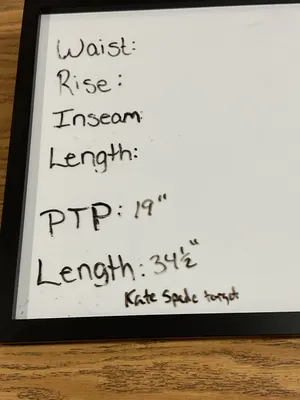 Waist:
Rise:
Inseam:
Length:
PTP: 19"
Length: 34½"
Kate Spade target